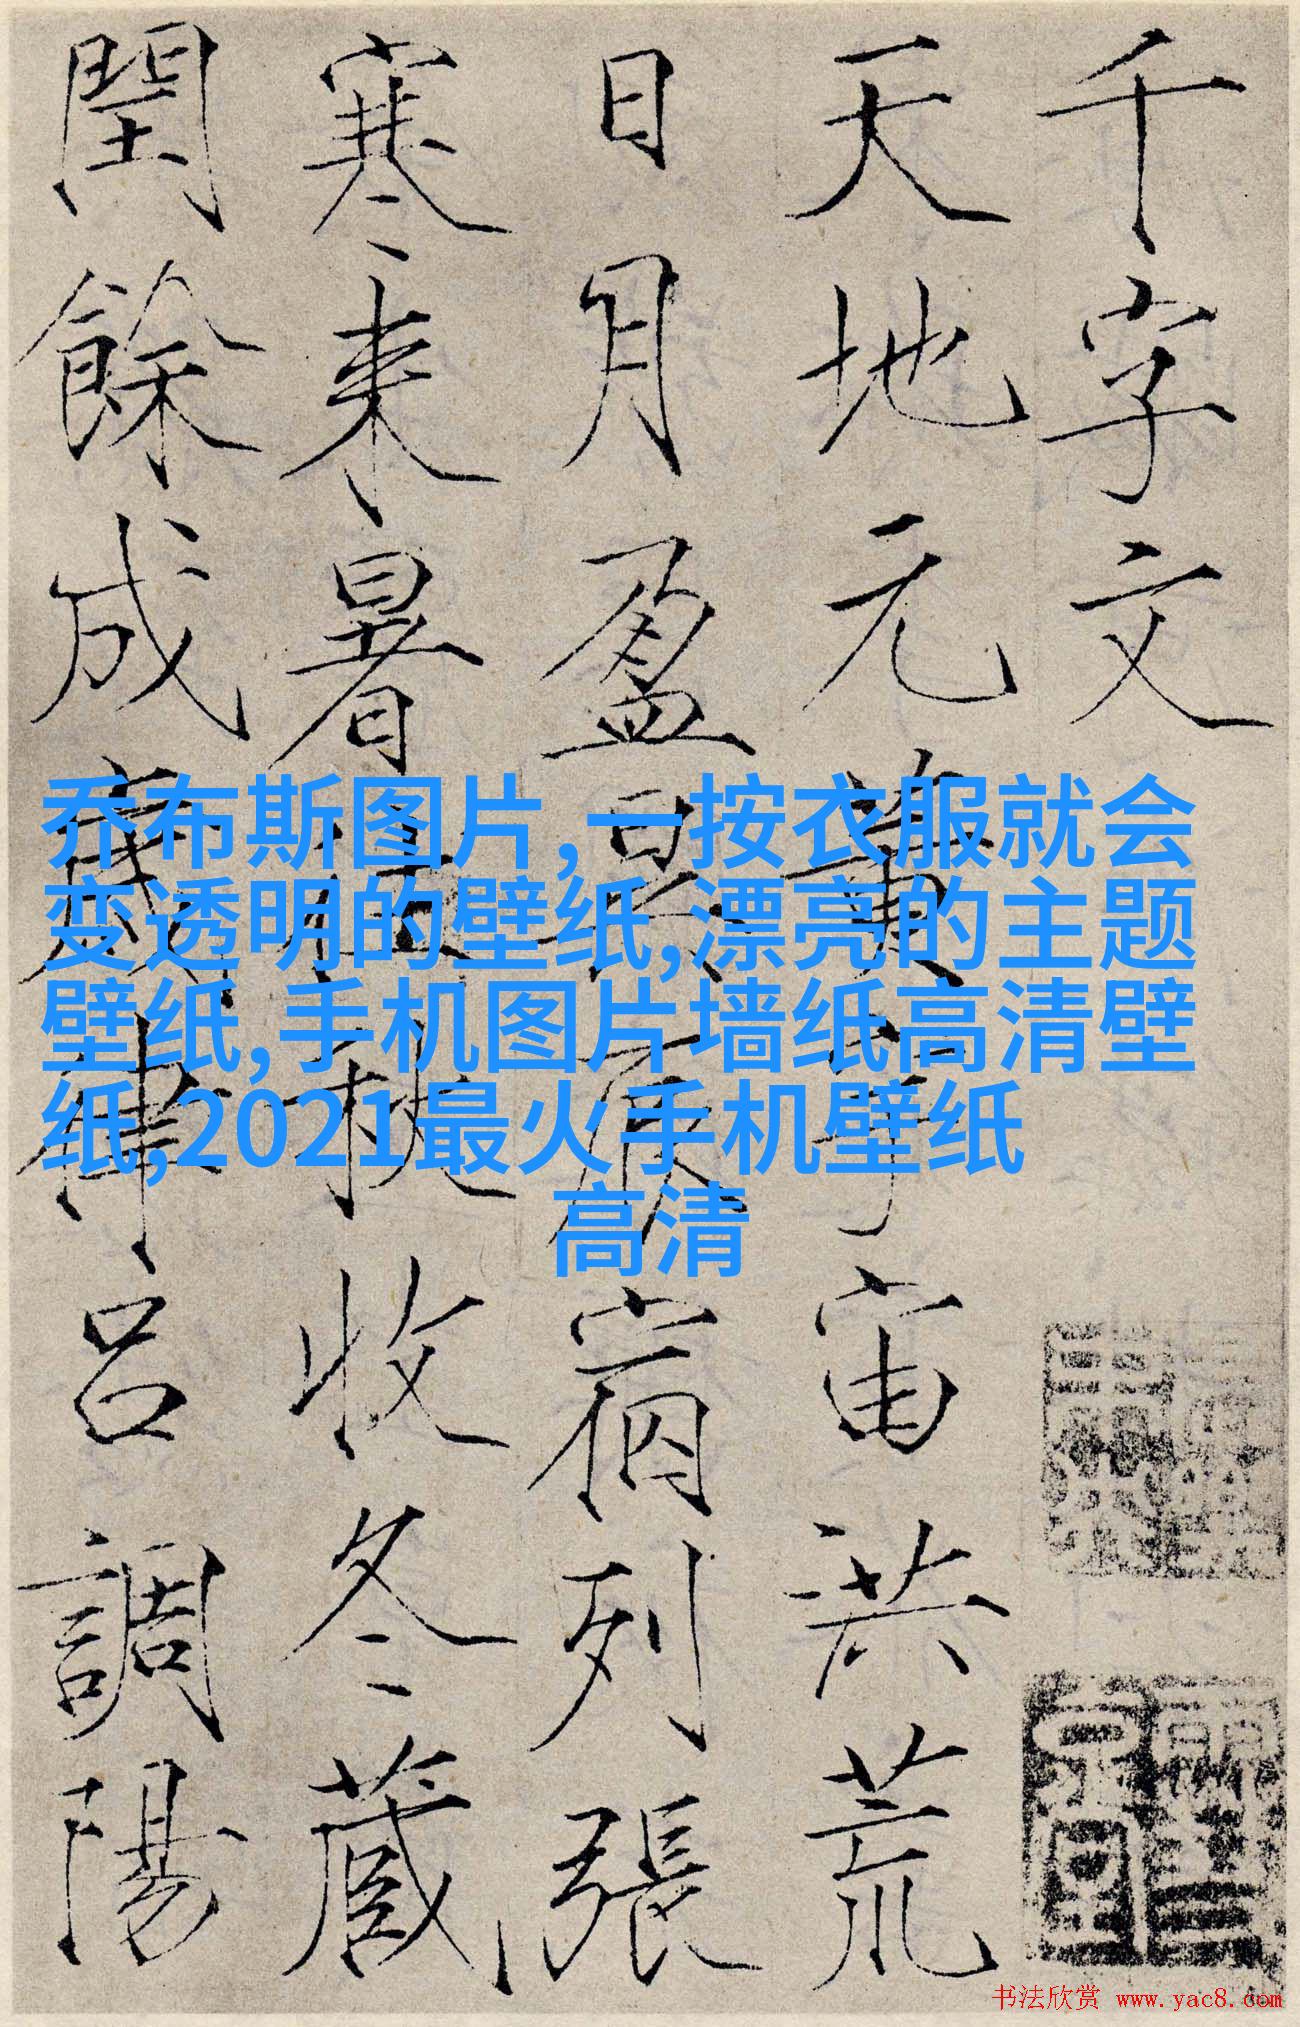 千字文
天地元黃宇宙洪荒
日月盈昃辰宿列張
寒来暑往秋收冬藏
閏餘成歲律呂調陽
乔布斯图片,一按衣服就会
变透明的壁纸,漂亮的主题
壁纸,手机图片墙纸高清壁
纸,2021最火手机壁纸
高清
书法欣赏 www.yac8.com